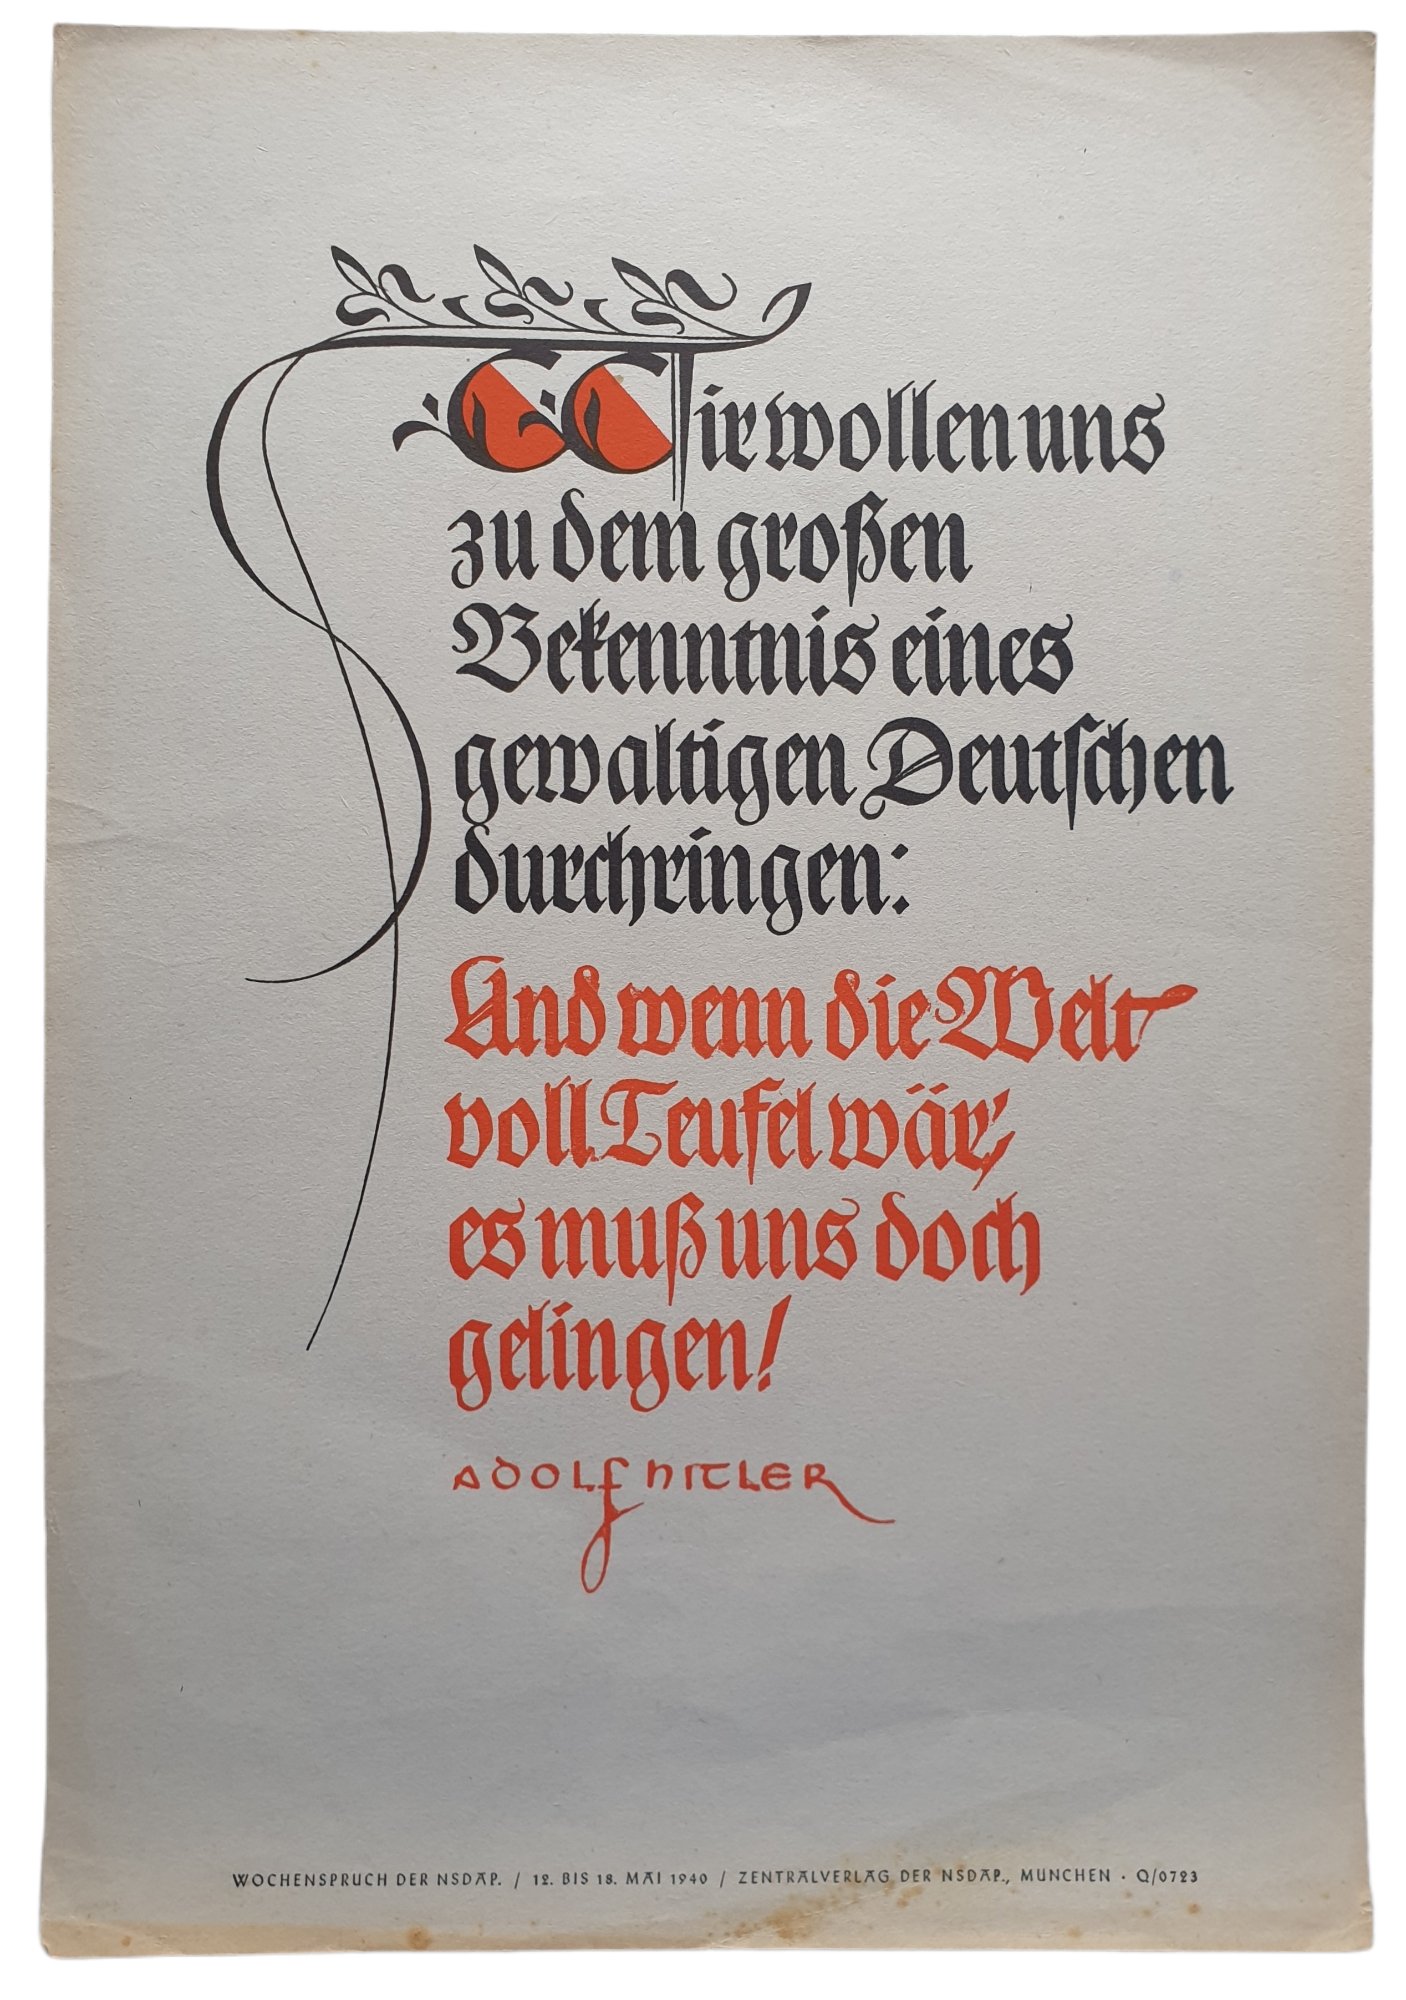 Wir wollen uns
zu dem großen
Bekenntnis eines
gewaltigen Deutschen
durchringen:
Und wenn die Welt
voll Teufel wär,
es muß uns doch
gelingen!
ADOLF HITLER
WOCHENSPRUCH DER NSDAP. / 12. BIS 18. MAI 1940 / ZENTRALVERLAG DER NSDAP., MÜNCHEN · Q/0723